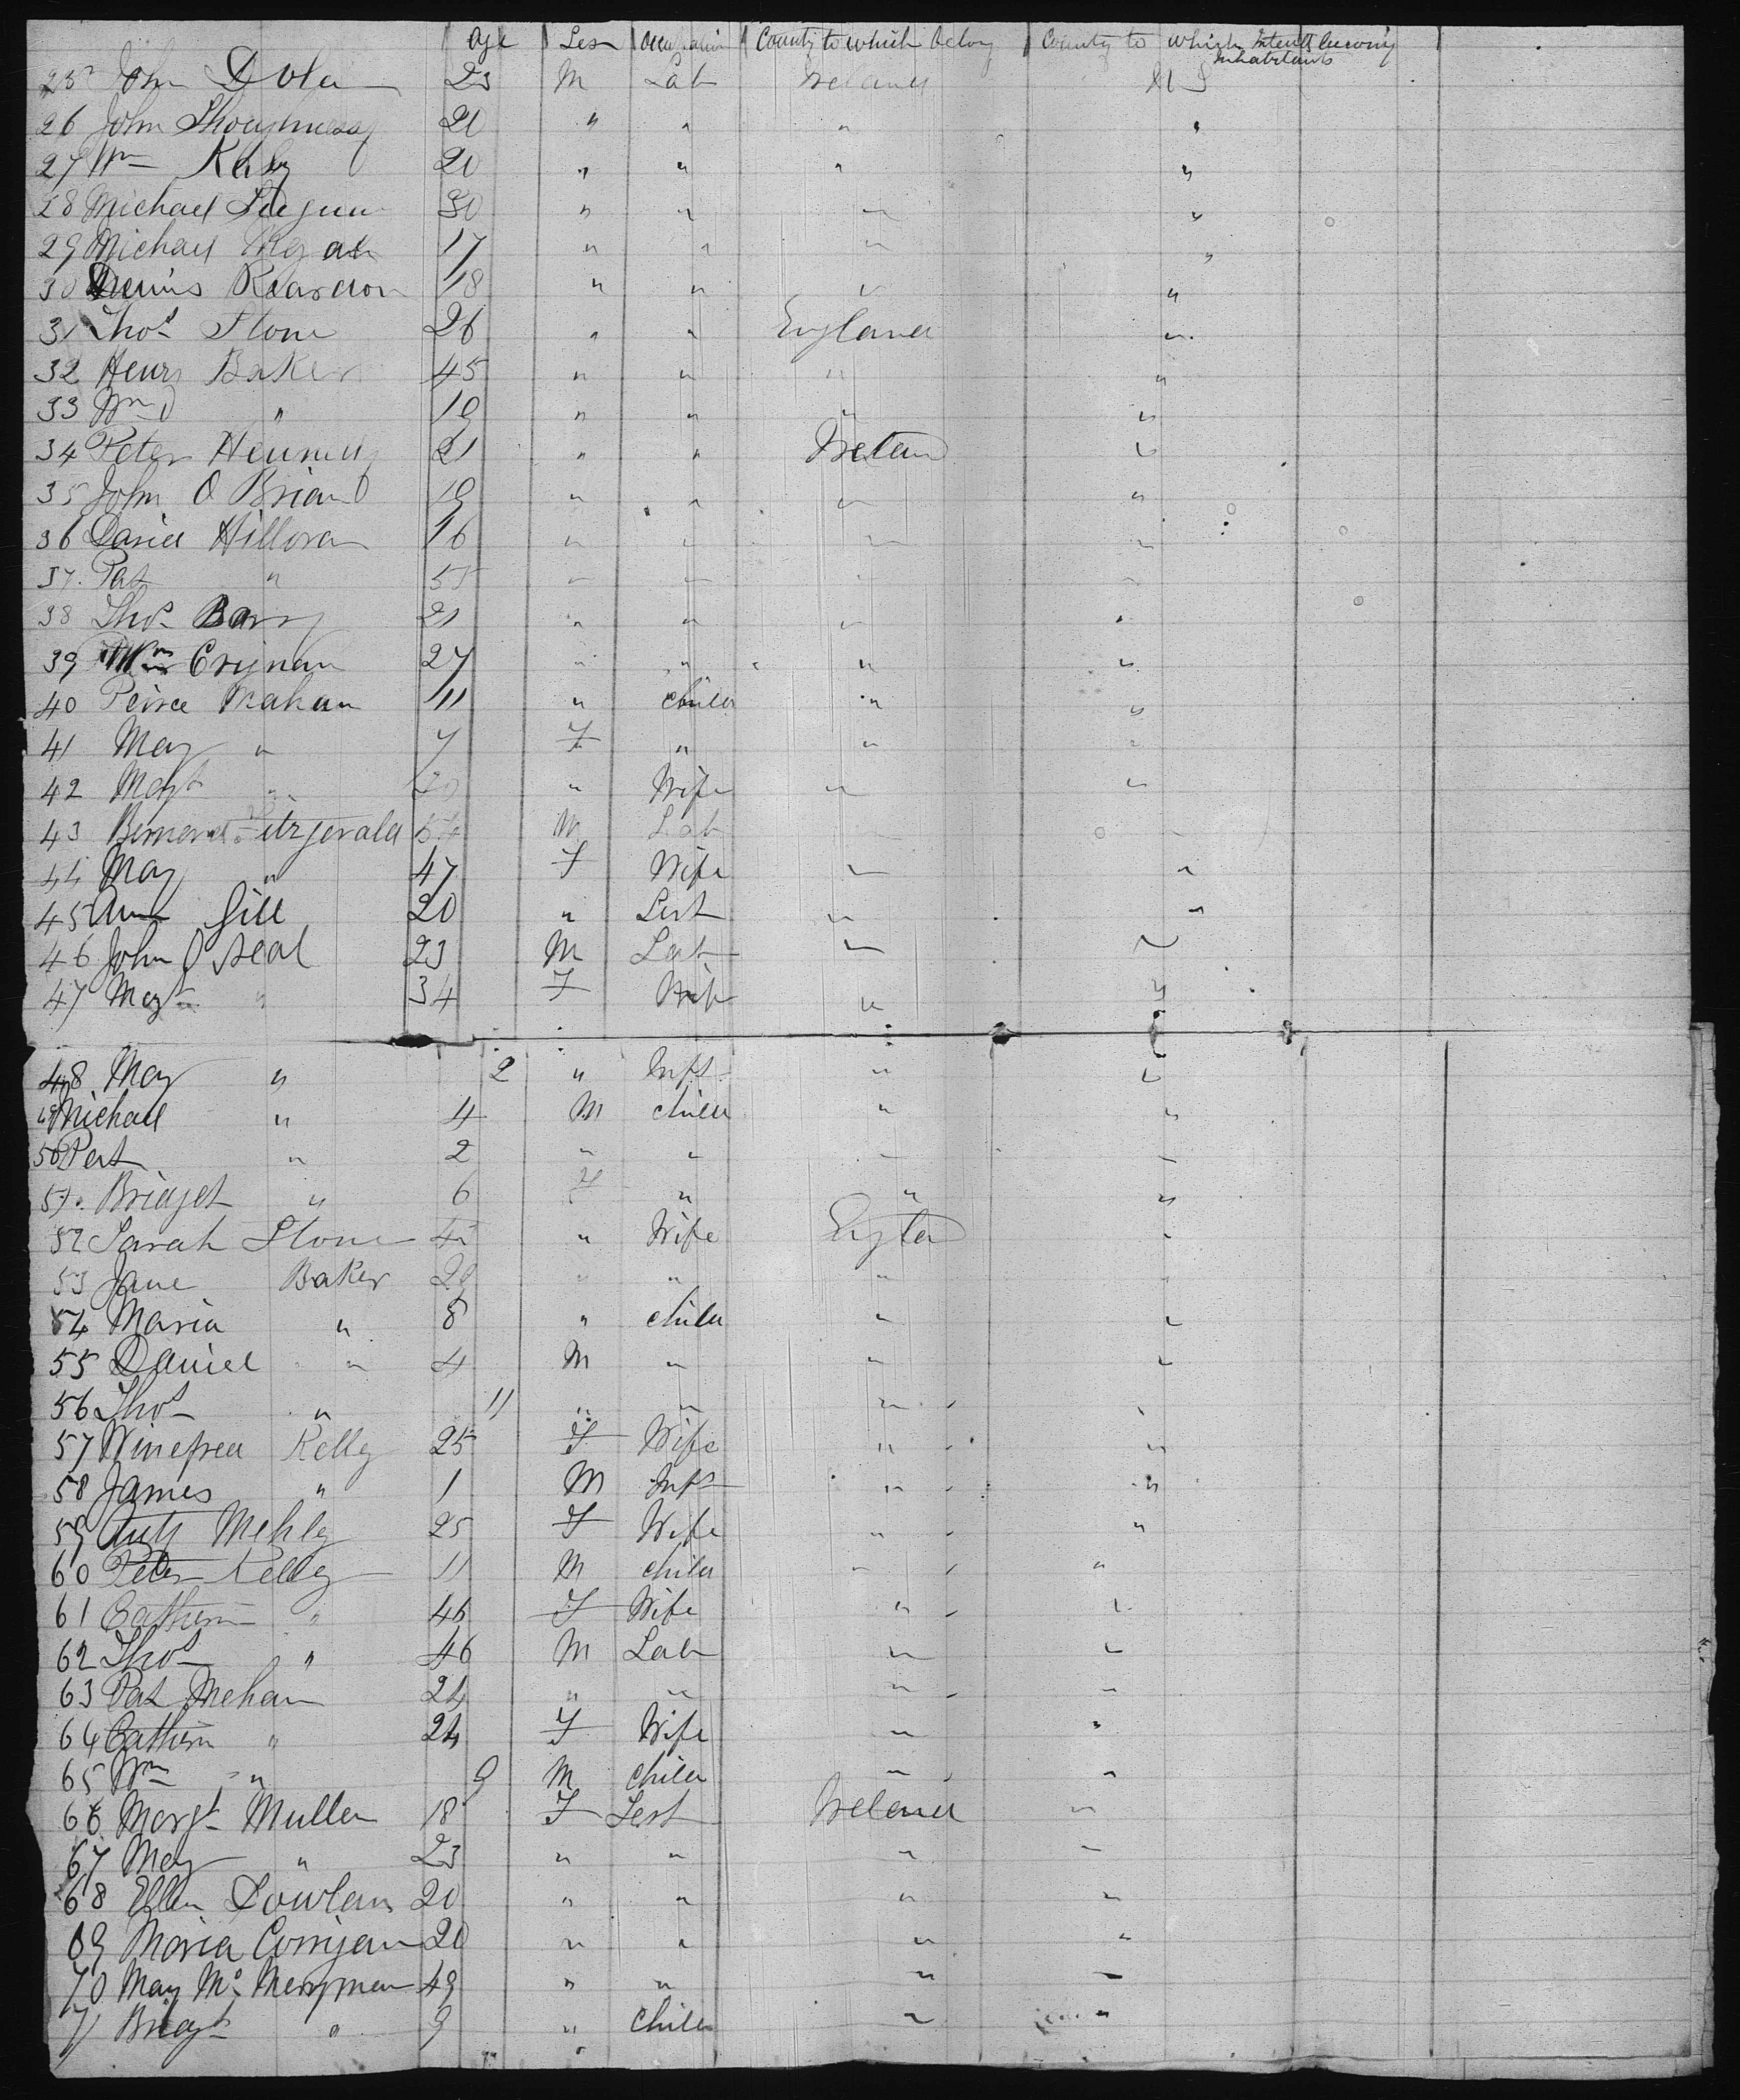 Age Sex Occupation County to which belong County to which Intend becoming Inhabitants
25 John Dolan 23 M Lab Ireland U S
26 John 20 " " " "
27 Wm 20 " " " "
28 Michael 30 " " " "
29 Michael 17 " " " "
30 Dennis Reardon 18 " " " "
31 Thos Stone 26 " " England "
32 Henry Baker 45 " " " "
33 Wm " 19 " " " "
34 Peter 21 " " Ireland "
35 John O Brian 19 " " " "
36 Daniel Hilloran 16 " " " "
37 Pat " 55 " " " "
38 Thos Barry 21 " " " "
39 Wm 27 " " " "
40 Peirce Mahan 11 " child " "
41 May " 7 F " " "
42 Magt " " Wife " "
43 Fitzgerald M Lab " "
44 May " 47 F Wife " "
45 Ann Gill 20 " " "
46 John O Neal 23 M Lab " "
47 Magt " 34 F Wife " "
48 May " 2 " Inft " "
49 Michael " 4 M child " "
50 Pat " 2 " " " "
51 Bridget " 6 F " " "
52 Sarah Stone " Wife England "
53 Jane Baker " " " "
54 Maria " 8 " child " "
55 Daniel " 4 M " " "
56 Thos " 11 " " " "
57 Winefred Kelly 25 F Wife " "
58 James " 1 M Inft " "
59 25 F Wife " "
60 Peter Kelly 11 M child " "
61 Cathern " 46 F Wife " "
62 Thos " 46 M Lab " "
63 Pat Mehan 24 " " " "
64 Cathern " 24 F Wife " "
65 Wm " 9 M child " "
66 Margt Mullen 18 F Ireland "
67 May " 23 " " " "
68 Ellen 20 " " " "
69 Maria Corrigan 20 " " " "
70 May Mc Merryman 49 " " " "
71 Bridgt " 9 " child " "